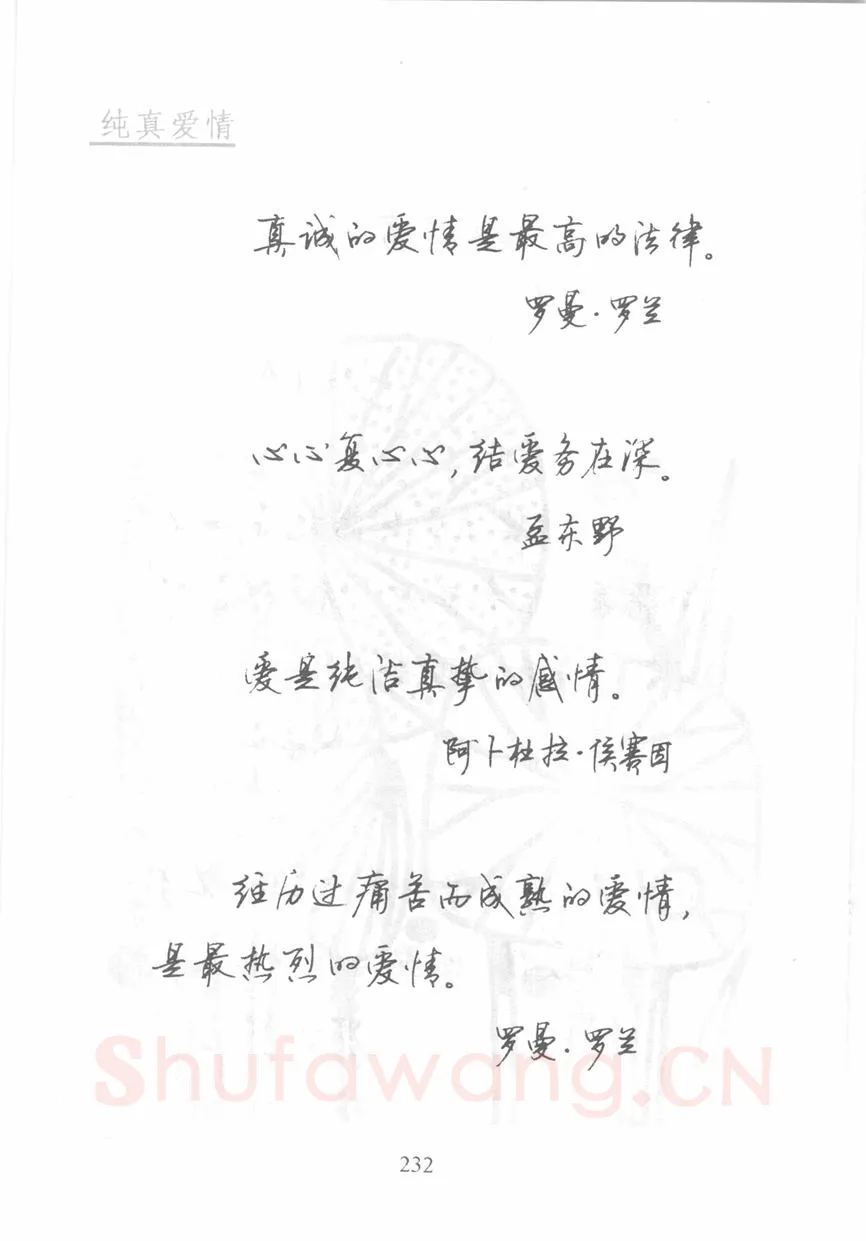 纯真爱情
真诚的爱情是最高的法律。
罗曼·罗兰
心心复心心,结爱务在深。
孟东野
爱是纯洁真挚的感情。
阿卜杜拉·侯赛因
经历过痛苦而成熟的爱情,
是最热烈的爱情。
罗曼·罗兰
Shufawang.CN
232